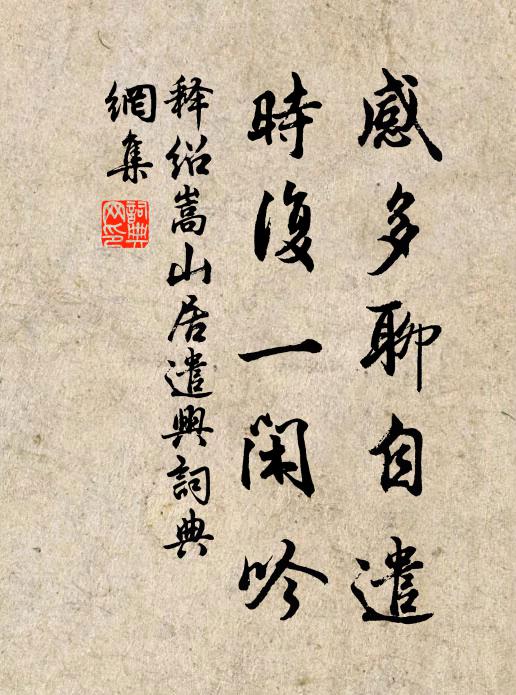 感多聊自遣
時復一閑吟
释绍嵩山居遣興詞典
網集
詞典網印